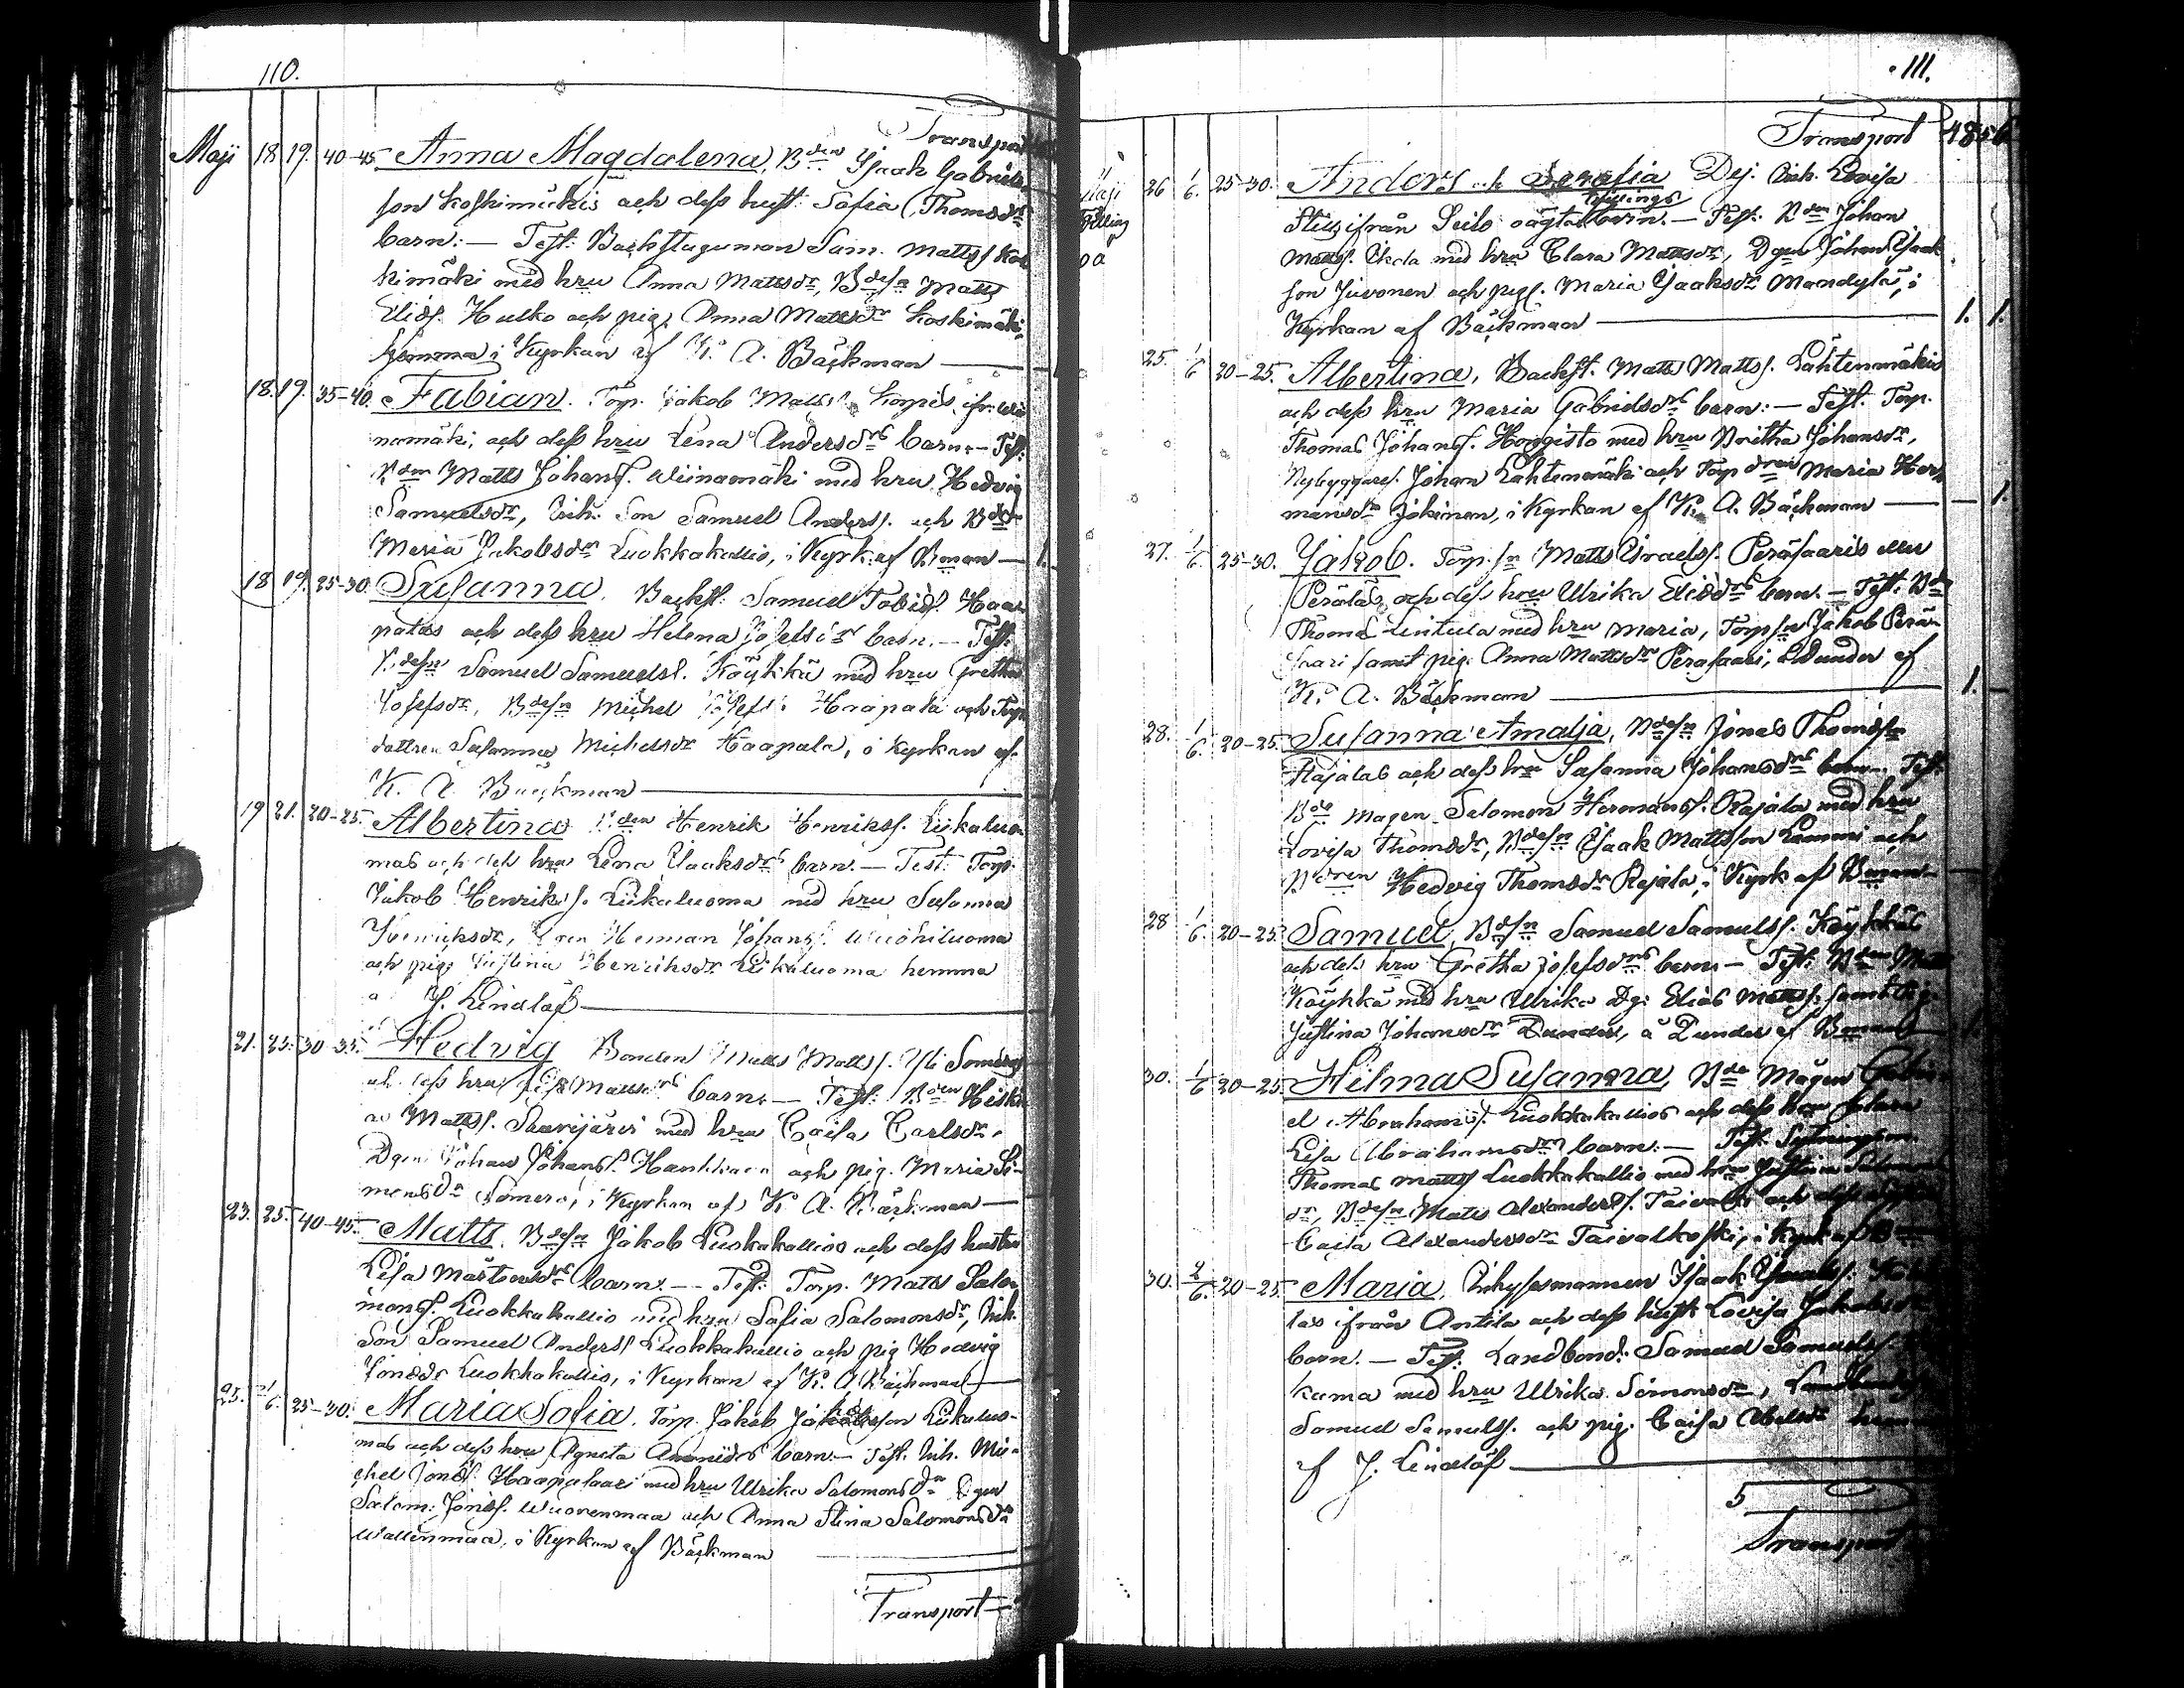 110.
Transport
Maji 18 19. 40-45 Anna Magdalena, Bden Isaak Gabriels
son Koskimäkis och dess hust: Sofia Thomsdrs
barn: — Test: Backstuguman Sam. Mattss Kos
kimäki med hru Anna Mattsdr, Bdesn Matts
Eliæs. Hulko och pig. Anna Mattsdr Koskimäki,
hemma i Kyrkan af K. A. Bäckman —
18. 19. 35-40. Fabian. Torp. Jakob Matts. Korpis, ifr. Wii
namäki, och dess hru Lena Andersdrs barn. — Test:
Bden Matts Johanss. Wiinamäki med hru Hedvig
Samuelsdr, Inh. Son Samuel Anderss. och Bdr
Maria Jakobsdr Luokkakallio, i Kyrk. af Bman — 1.
18 19. 25-30. Susanna. Backst: Samuel Tobiæs. Haa-
palas och dess hru Helena Josefsdrs barn. — Test:
Bdesn Samuel Samuelss. Käykkä med hru Gretha
Josefsdr, Bdesn Michel Haapala och Torp
dottren Susanna Michelsdr Haapala, i Kyrkan af
K. A. Bäckman —
19 21. 20-25. Albertina Bden Henrik Henrikss. Liikaluo-
mas och dess hru Lena Isaaksdrs barn. — Test: Torp.
Jakob Henrikss. Liikaluoma med hru Susanna
Henriksdr, Herman Johanss. Wuohiluoma
och pig. Justina Henriksdr Liikaluoma hemma
a J. Lindlöf —
21. 25. 30-35. Hedvig Bonden Matts Mattss. Yli Someros
och dess hru Mattsdrs barn. — Test: Bden Hiski
as Mattss. Saarijärvi med hru Caisa Carlsdr.
Dgen Johan Johanss. och pig. Maria Si-
monsdr Somero, i Kyrkan af K. A. Bäckman —
23. 25. 40-45. Matts. Bdesn Jakob Luokakallios och dess hustru
Lisa Mårtensdrs barn. — Test: Torp. Matts Salo
monss. Luokkakallio med hru Sofia Salomonsdr, Inh.
Son Samuel Anderss Luokkakallio och pig Hedvig
Jonædr Luokkakallio, i Kyrkan af K. A Bäckman —
25. 1/6. 25-30. Maria Sofia. Torp. Jakob Jakobsson Liikaluo-
mas och dess hru Agneta barn. — Test. Inh. Mi-
chel Jonæs. Haapasaari med hru Ulrika Salomonsdr Dgen
Salom: Jonæs. Wuorenmaa och Anna Stina Salomonsdr
Wallinmaa, i Kyrkan af Bäckman —
Transport —
111.
Transport 48 56
Maji 26 1/6. 25-30. Anders och Serafia Dej. Inh. Lovisa
Tvilling
ifrån Seilo oägta tvillings barn. — Test. Bden Johan
Mattss. med hru Clara Mattsdr, Dgen Johan Isaak
son Juvonen och pig. Maria Isaaksdr Mandylä, i
Kyrkan af Bäckman — 1. 1.
25. 1/6 20-25. Albertina, Backst. Matts Mattss. Lähtenmäkis
och dess hru Maria Gabrielsdrs barn: — Test. Torp.
Thomas Johanss. Hongisto med hru Britha Johansdr,
Nybyggares. Johan Lahtenmäki och Torp dren Maria Her
mansdr Jokinen, i Kyrkan af K. A. Bäckman — 1.
27. 1/6. 25-30. Jakob. Torp.sn Matts Israelss. Peräsaaris eller
Perälä, och dess hru Ulrika Eliædrs barn. — Test: Bden
Thomas Lintula med hru Maria, Torpsn Jakob Perä-
saari samt pig. Anna Mattsdr Peräsaari, å Dunder af
K. A. Bäckman — 1.
28. 1/6. 20-25. Susanna Amalja, Bdesn Jonas Thomæs
Rajalas och dess hru Susanna Johansdrs barn. Test:
Bde Mågen Salomon Hermanss. Rajala med hru
Lovisa Thomædr, Bdesn Isaak Mattsson Lammi och
Bdren Hedvig Thomædr Rajala, i Kyrk af Bman —
28 1/6. 20-25. Samuel, Bdesn Samuel Samuelss. Käykkäs
och dess hru Gretha Josefsdrs barn — Test: Bden Matts
Käykkä med hru Ulrika Dg: Elias Mattss. samt pig.
Justina Johansdr Dunder, å Dunder af Bman — 1
30. 1/6 20-25. Hilma Susanna, Bde Mågen Gabri
el Abrahamss. Luokkakallios och dess hru
Lisa Abrahamsdrs barn: — Test.
Thomas Mattss Luokkakallio med hru Justina Salomons
dr, Bdesn Matts Alexanderss. Taivalkoski och dess
Caisa Alexandersdr Taivalkoski, i Kyrk af B —
30. 2/6. 20-25. Maria. Inhysesmannen Isaak
las ifrån Antila och dess hust Lovisa Jakobsdrs
barn. — Test: Landbond: Samuel Samuelss.
kama med hru Ulrika Simonsdr,
Samuel Samuelss. och pig. Caisa Abelsdr
af J. Lindlöf —
5
Transport